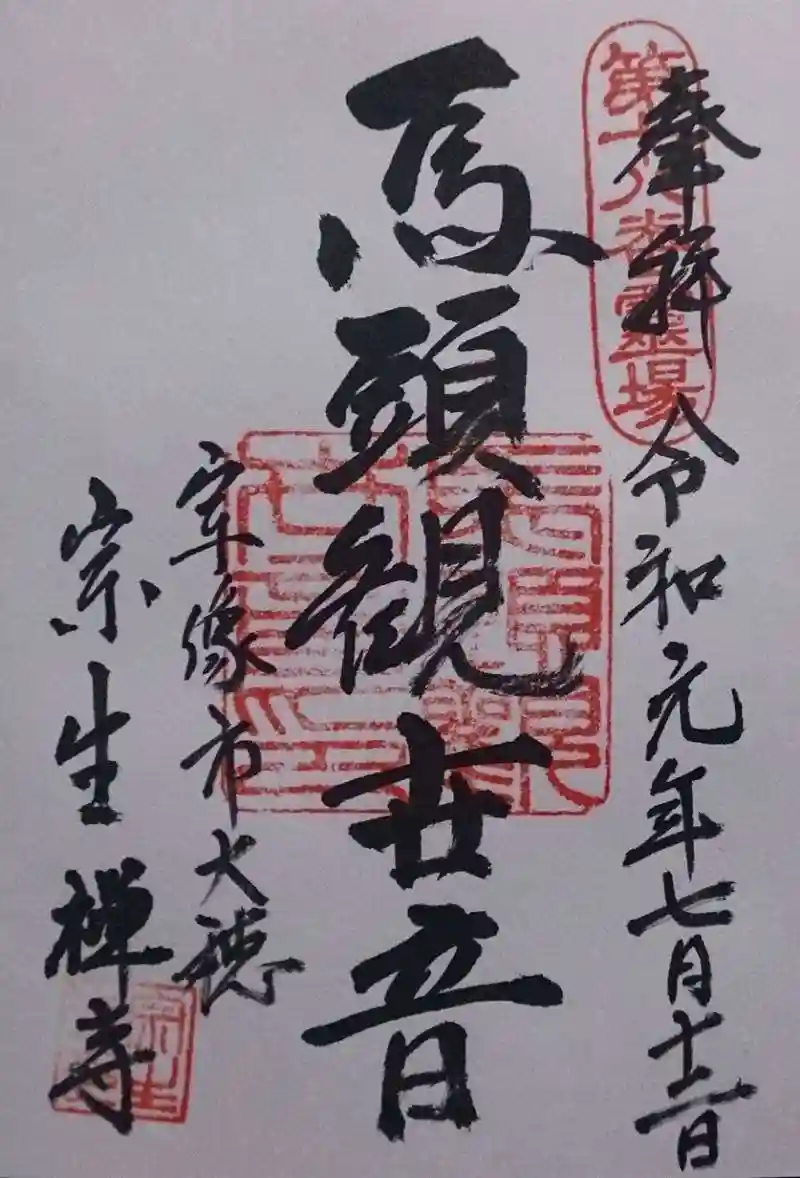 奉拝 令和元年七月十二日
第十八番靈場
馬頭観世音
宗像市大穂
宗生禅寺